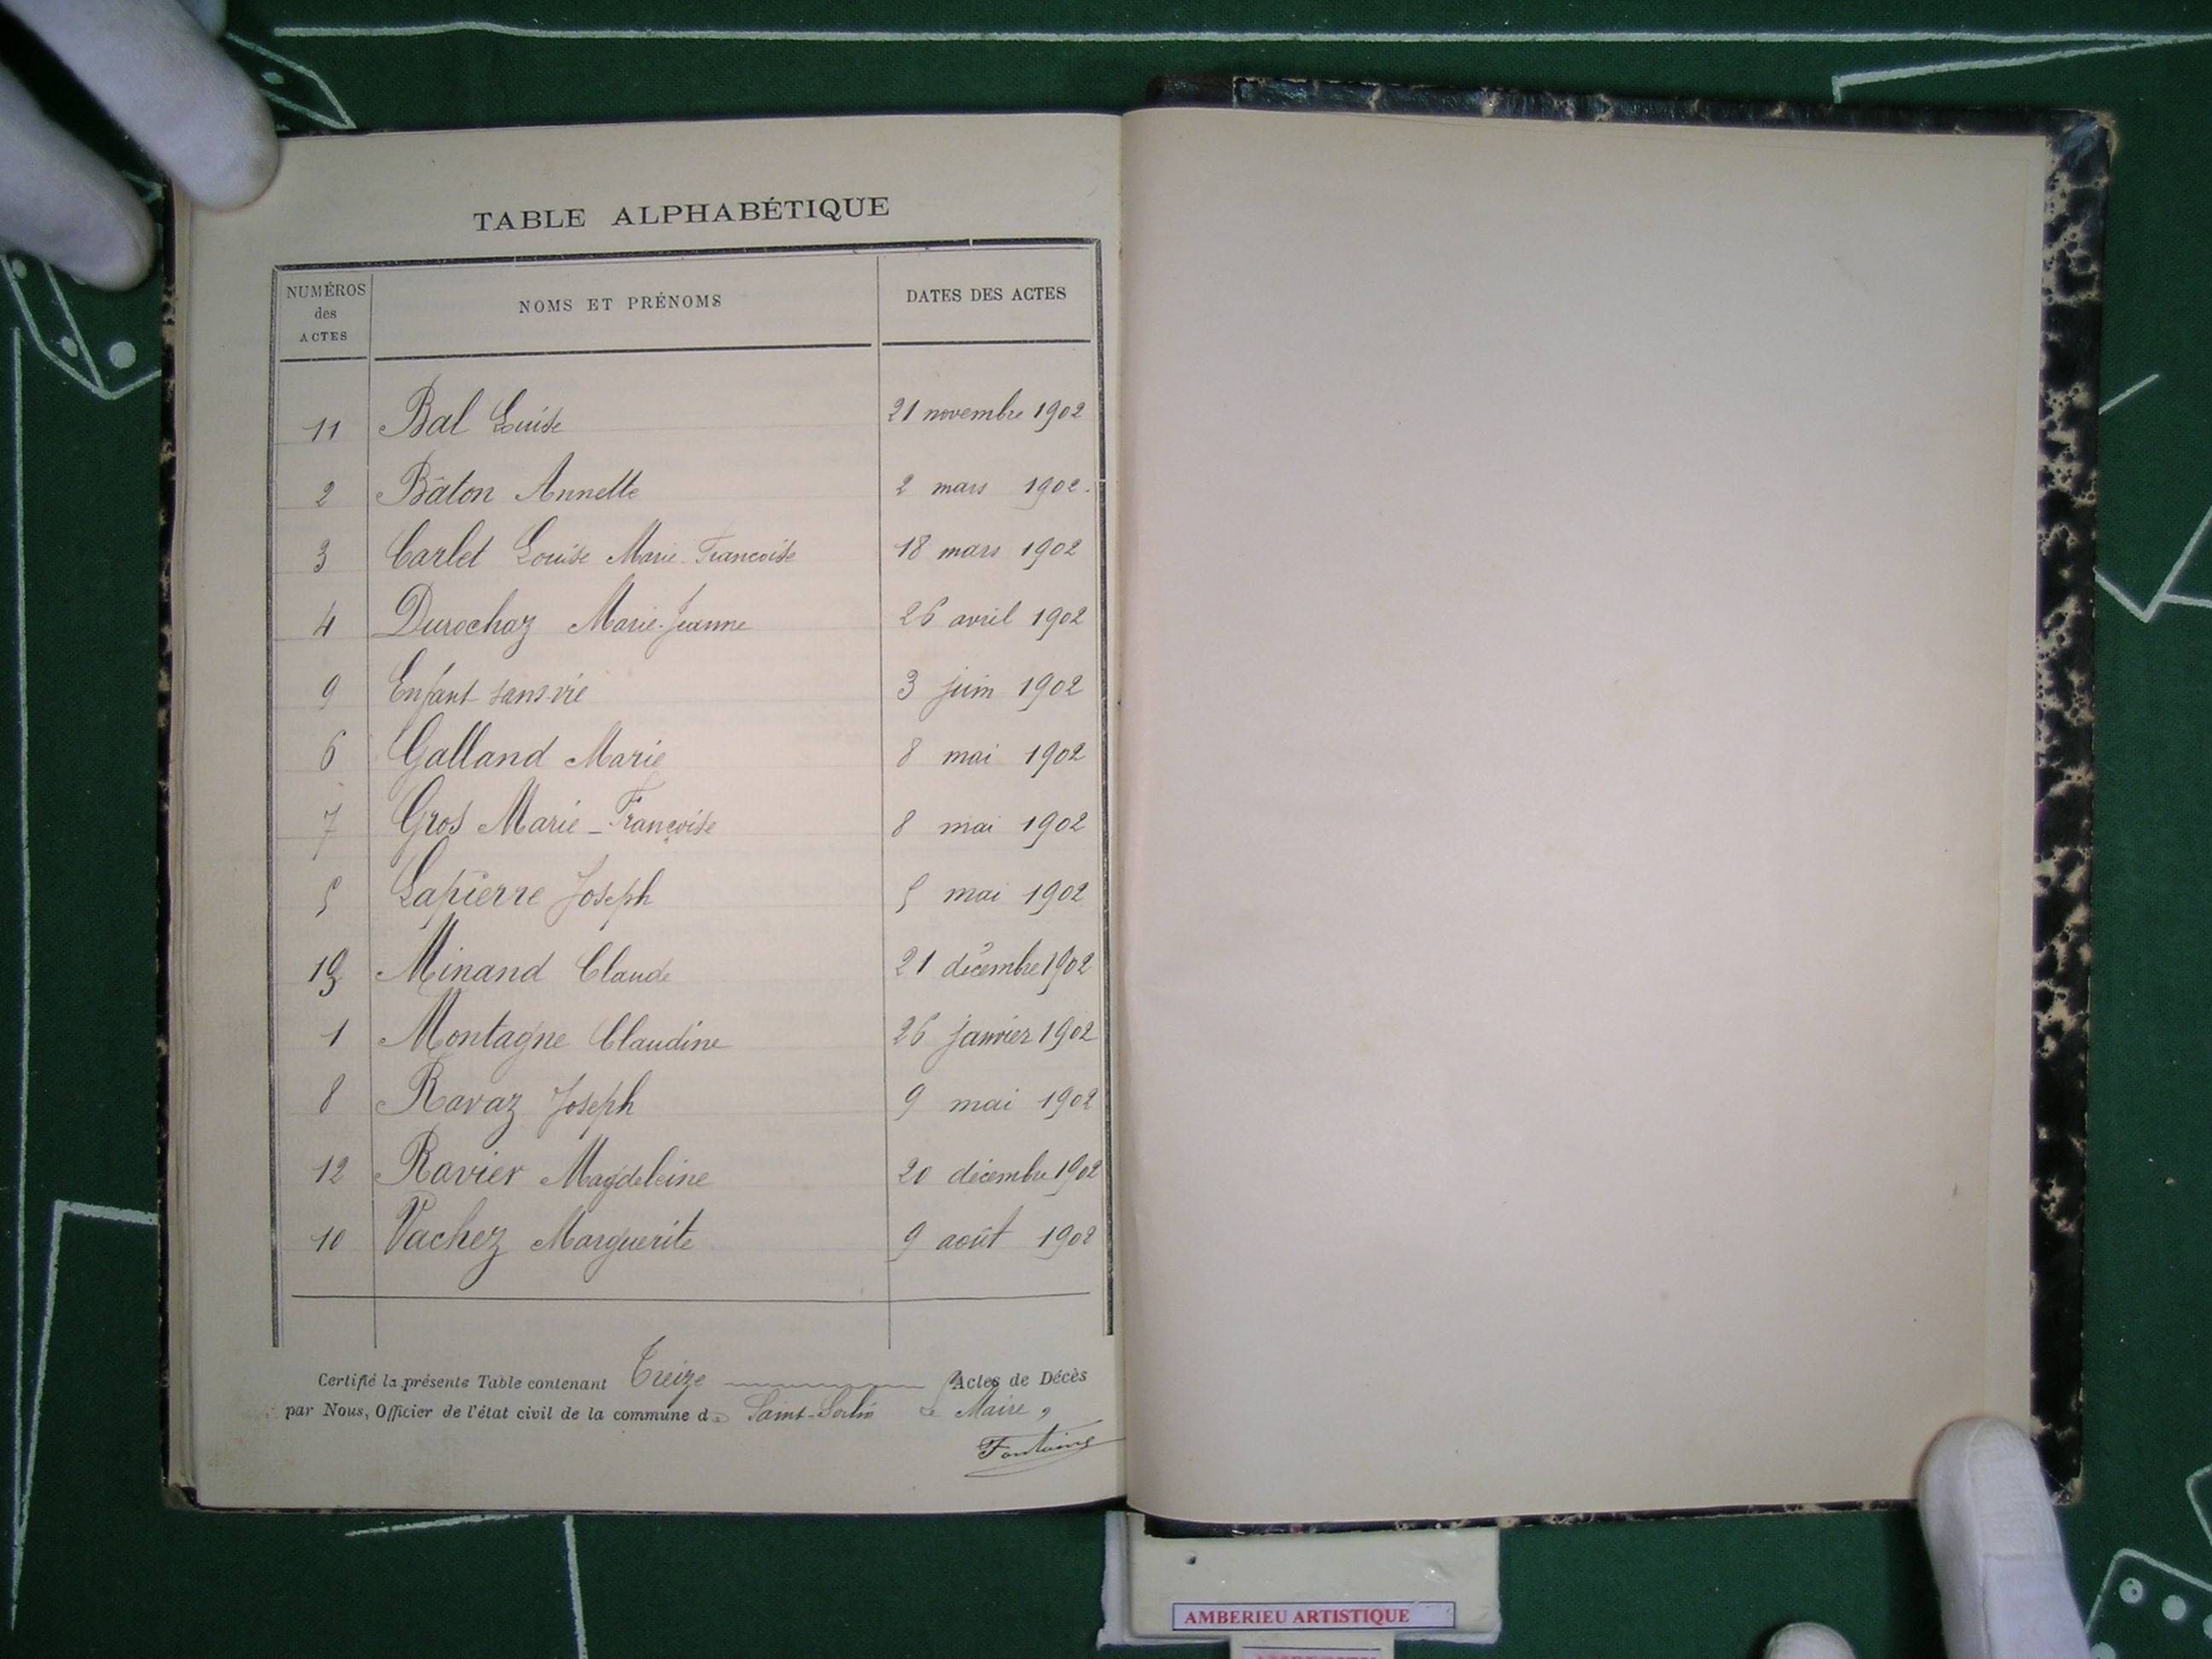 TABLE ALPHABÉTIQUE
NUMÉROS des ACTES NOMS ET PRÉNOMS DATES DES ACTES
11 Bal Louise 21 novembre 1902
2 Bâton Annette 2 mars 1902.
3 Carlet Louise Marie-Francoise 18 mars 1902
4 Durochaz Marie-Jeanne 26 avril 1902
9 Enfant sans-vie 3 juin 1902
6 Galland Marie 8 mai 1902
7 Gros Marie-Françoise 8 mai 1902
5 Lapierre Joseph 5 mai 1902
13 Minand Claude 21 décembre 1902
1 Montagne Claudine 26 janvier 1902
8 Ravaz Joseph 9 mai 1902
12 Ravier Magdeleine 20 décembre 1902
10 Vachez Marguerite 9 août 1902
Certifié la présente Table contenant Treize Actes de Décès
par Nous, Officier de l'état civil de la commune de Saint-Sorlin Le Maire,
Fontaine
AMBERIEU ARTISTIQUE